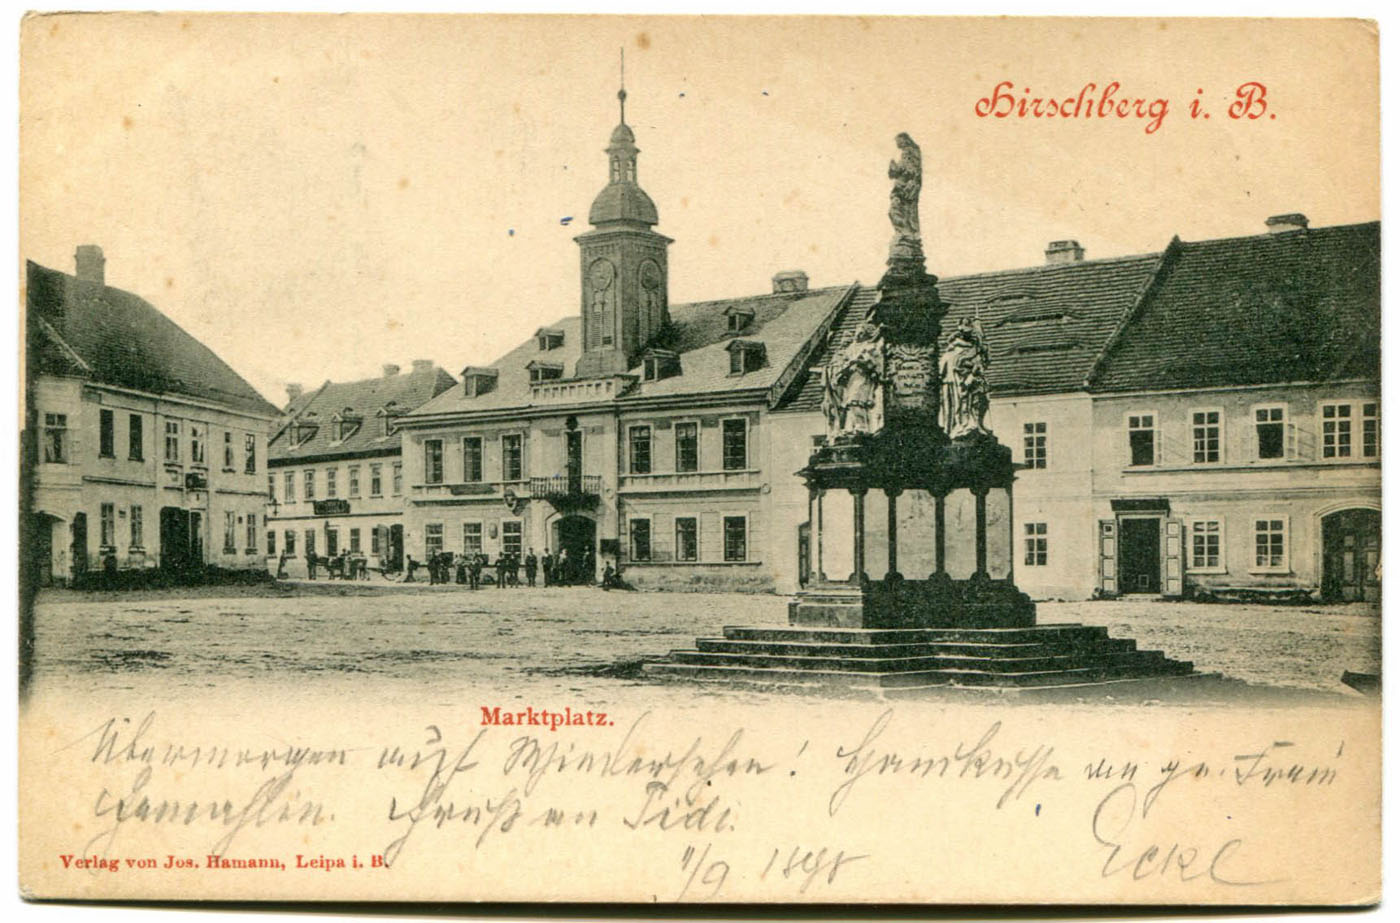 Hirschberg i. B.
Marktplatz.
Übermorgen auf Wiedersehen! Handkuss an ge. Frau
Gemahlin. Gruß an Pidi.
Verlag von Jos. Hamann, Leipa i. B.
11/9 1898
Eckl